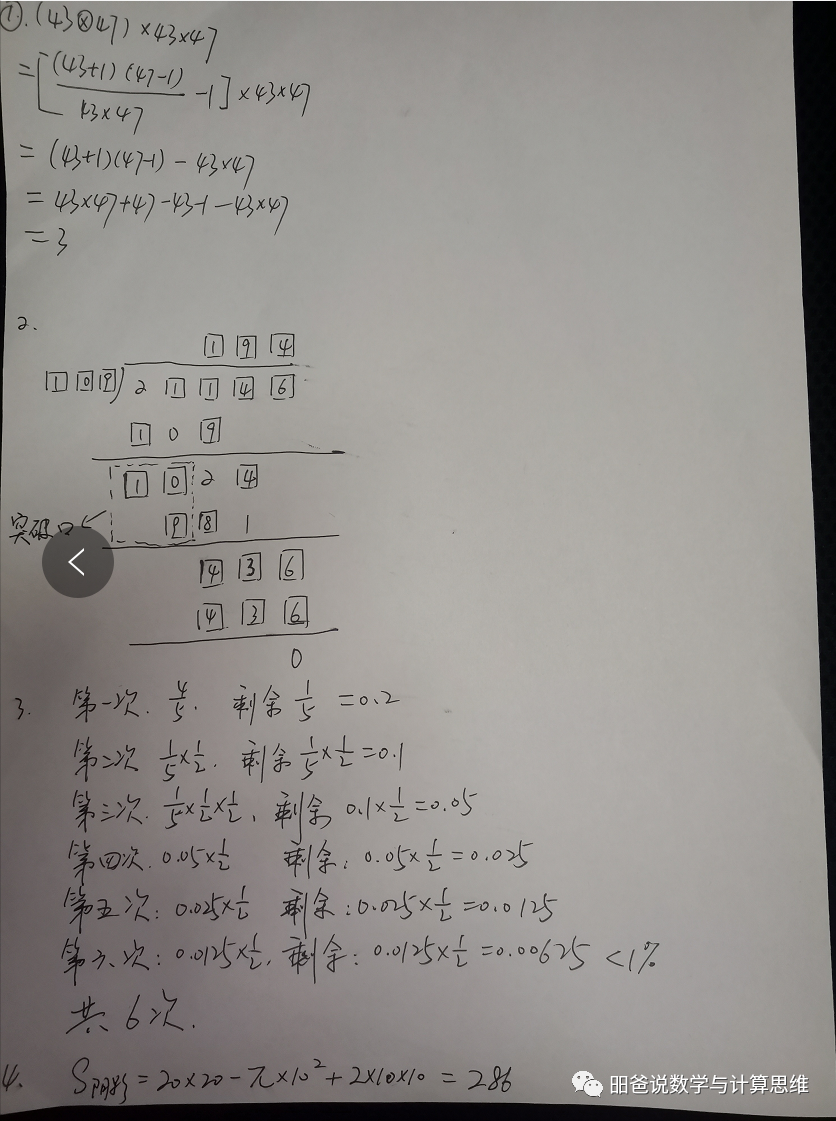 ①. (43⊗47)×43×47
=[(43+1)(47-1)/43×47 -1]×43×47
= (43+1)(47-1) - 43×47
= 43×47+47-43-1-43×47
= 3
2.
1 9 4
1 0 9 ) 2 1 1 4 6
1 0 9
1 0 2 4
突破口 9 8 1
4 3 6
4 3 6
0
3. 第一次. 4/5. 剩余 1/5 =0.2
第二次 1/5×1/2. 剩余 1/5×1/2=0.1
第三次. 1/5×1/2×1/2, 剩余 0.1×1/2=0.05
第四次. 0.05×1/2 剩余: 0.05×1/2=0.025
第五次: 0.025×1/2 剩余: 0.025×1/2=0.0125
第六次: 0.0125×1/2, 剩余: 0.0125×1/2=0.00625 <1%
共 6次.
4. S阴影=20×20-π×10²+2×10×10 = 286
昍爸说数学与计算思维